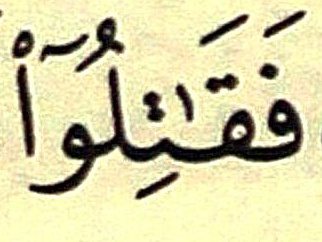 فَقَٰتِلُوٓا۟